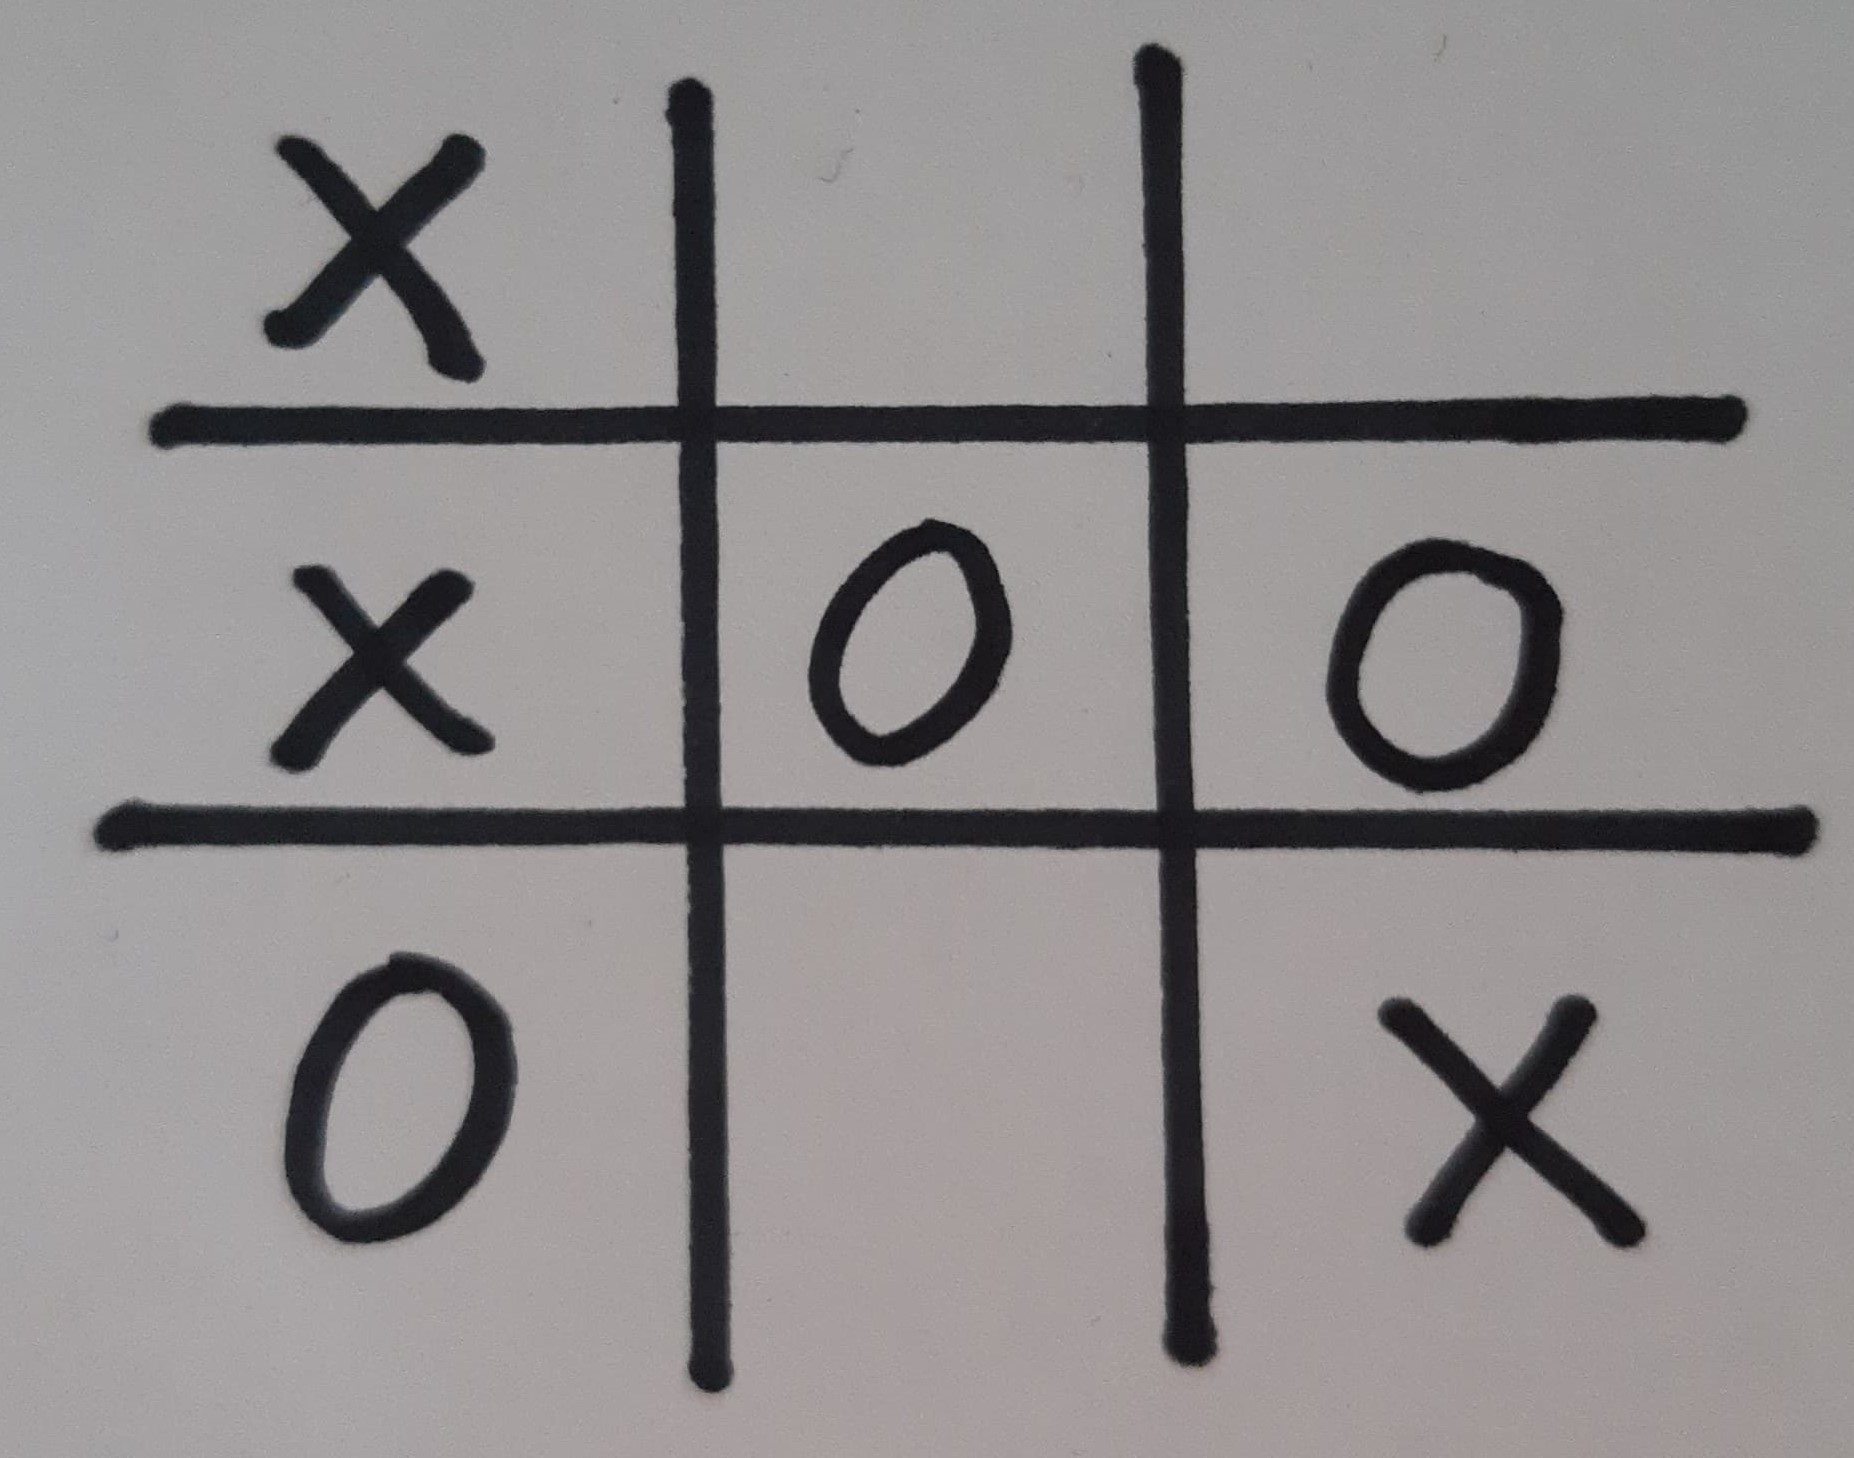 X
X O O
O X